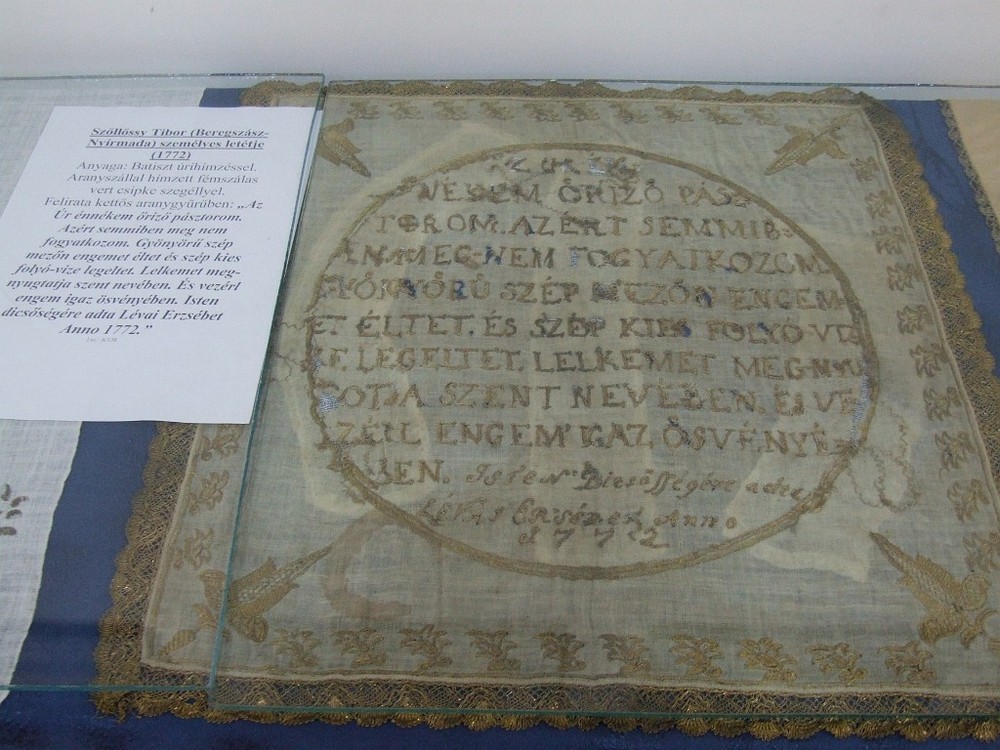 Szöllössy Tibor (Beregszász-
Nyírmada) személyes letétje
(1772)
Anyaga: Batiszt úrihímzéssel.
Aranyszállal hímzett fémszálas
vert csipke szegéllyel.
Felirata kettős aranygyűrűben: „Az
Úr énnékem őriző pásztorom.
Azért semmiben meg nem
fogyatkozom. Gyönyörű szép
mezőn engemet éltet és szép kies
folyó-vize legeltet. Lelkemet meg-
nyugtatja szent nevében. És vezérl
engem igaz ösvényében. Isten
dicsőségére adta Lévai Erzsébet
Anno 1772.”
NEKEM ŐRIZŐ PÁSZ
TOROM. AZÉRT SEMMIB-
EN. MEG-NEM FOGYATKOZOM.
GYÖNYÖRŰ SZÉP MEZŐN ENGEM-
ET ÉLTET. ÉS SZÉP KIES FOLYÓ-VI-
ZE. LEGELTET. LELKEMET MEG-NYU
GOTJA SZENT NEVÉBEN. És VE
ZÉLL ENGEM' IGAZ ÖSVÉNYÉ-
BEN. Isten Dicsősségére adta
LÉVAI Anno
1772